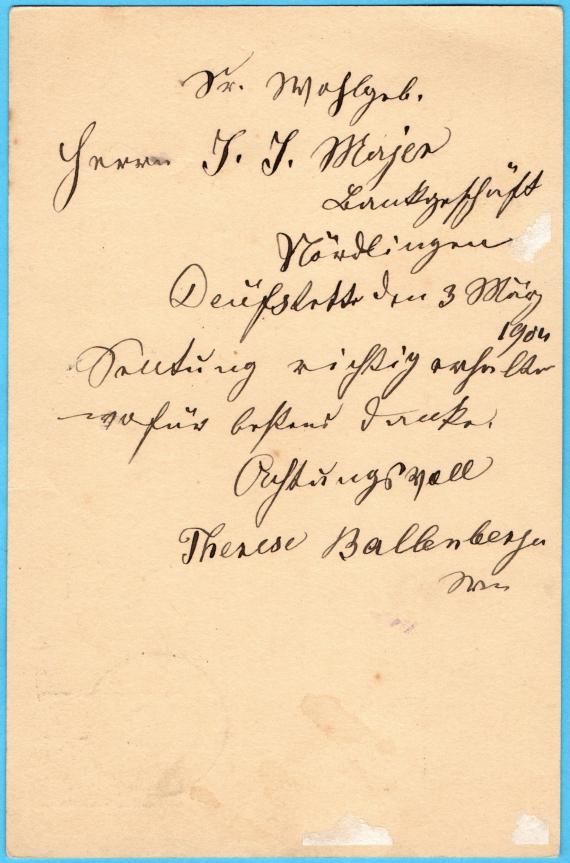 Sr. Wohlgeb.
Herrn J. J. Majer
Bankgeschäft
Nördlingen
Deufstette den 3 März
1904
Sentung richtig erhalten
wofür bestens danke.
Achtungsvoll
Therese Ballenberger
Wwe